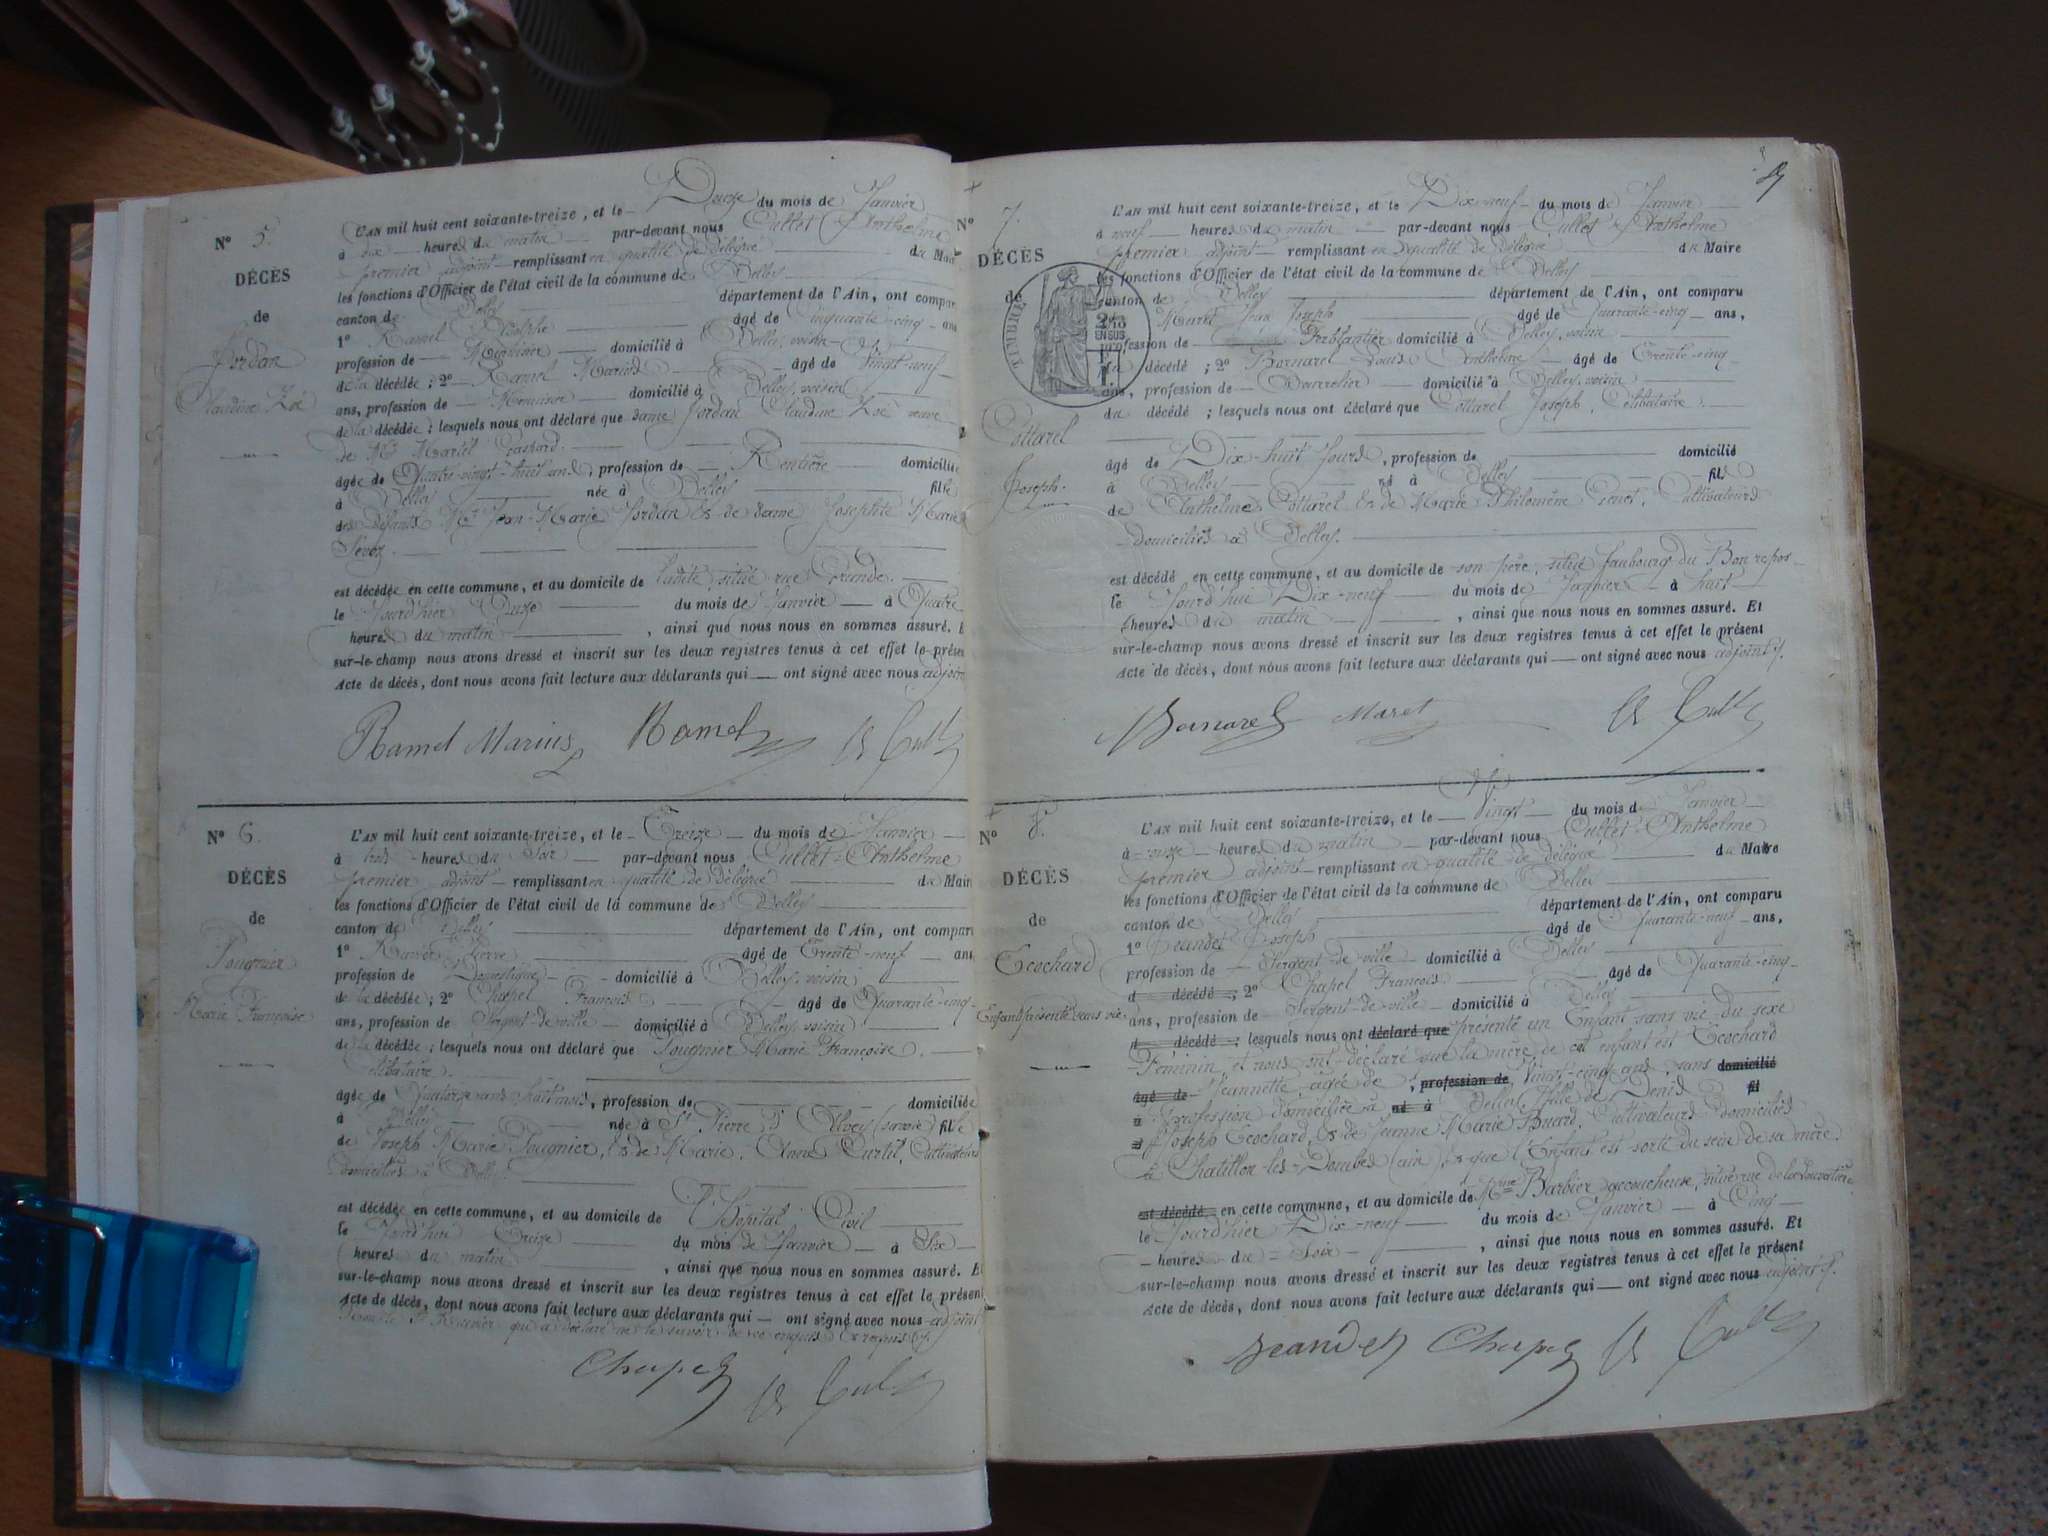 N° 5.
DÉCÈS
de
Jordan
Claudine Zoé
L'AN mil huit cent soixante-treize, et le Douze du mois de Janvier
à dix heures du matin par-devant nous Cullet Anthelme
premier adjoint remplissant en qualité de délégué du Maire
les fonctions d'Officier de l'état civil de la commune de Belley
canton de Belley département de l'Ain, ont comparu
1° Ramel âgé de Cinquante-cinq ans
profession de Menuisier domicilié à Belley, voisin
de la décédée ; 2° Ramel Marius âgé de Vingt-neuf
ans, profession de Menuisier domicilié à Belley, voisin
de la décédée ; lesquels nous ont déclaré que dame Jordan Claudine Zoé veuve
de Mr Martel
âgée de Quatre-vingt-huit ans, profession de Rentière domiciliée
à Belley née à Belley fille
des défunts Mr Jean-Marie Jordan et de dame Josephte Marie
est décédée en cette commune, et au domicile de ladite, situé rue Grande.
le Jourd'hier Onze du mois de Janvier à Quatre
heures du matin, ainsi que nous nous en sommes assuré. E
sur-le-champ nous avons dressé et inscrit sur les deux registres tenus à cet effet le présen
Acte de décès, dont nous avons fait lecture aux déclarants qui ont signé avec nous adjoin
Ramel Marius Ramel
N° 6.
DÉCÈS
de
Pougnier
Marie Françoise
L'AN mil huit cent soixante-treize, et le Treize du mois de Janvier
à trois heures du Soir par-devant nous Cullet Anthelme
premier adjoint remplissant en qualité de délégué du Mair
les fonctions d'Officier de l'état civil de la commune de Belley
canton de Belley département de l'Ain, ont comparu
1° Pierre âgé de Trente-neuf ans
profession de Domestique domicilié à Belley, voisin
de la décédée ; 2° Chapel François âgé de Quarante-cinq
ans, profession de Sergent-de-ville domicilié à Belley, voisin
de la décédée ; lesquels nous ont déclaré que Pougnier Marie Françoise,
célibataire.
âgée de Quatorze ans huit mois, profession de domiciliée
à Belley née à St Pierre d'Alvey (savoie) fille
de Joseph Marie Pougnier, et de Marie, Anne Curtil, Cultivateurs
domiciliés à Belley.
est décédée en cette commune, et au domicile de l'Hôpital Civil
le Jourd'hui Treize du mois de Janvier à Six
heures du matin, ainsi que nous nous en sommes assuré. E
sur-le-champ nous avons dressé et inscrit sur les deux registres tenus à cet effet le présen
Acte de décès, dont nous avons fait lecture aux déclarants qui ont signé avec nous adjoint
qui a déclaré ne le savoir de ce enquis et requis
Chapel
N° 7.
DÉCÈS
de
TIMBRE
EN SUS
Cottarel
Joseph.
L'AN mil huit cent soixante-treize, et le Dix-neuf du mois de Janvier
à neuf heures du matin par-devant nous Cullet Anthelme
premier adjoint remplissant en qualité de délégué du Maire
les fonctions d'Officier de l'état civil de la commune de Belley
canton de Belley département de l'Ain, ont comparu
Maret Jean Joseph âgé de Quarante-cinq ans,
profession de Ferblantier domicilié à Belley, voisin
du décédé ; 2° Bornarel Louis Anthelme âgé de Trente-cinq
ans, profession de Bourrelier domicilié à Belley, voisin
du décédé ; lesquels nous ont déclaré que Cottarel Joseph, Célibataire.
âgé de Dix-huit Jours, profession de domicilié
à Belley né à Belley fils
de Anthelme Cottarel et de Marie Philomène, Cultivateurs
domiciliés à Belley.
est décédé en cette commune, et au domicile de son père, situé faubourg du Bon repos
le Jourd'hui Dix-neuf du mois de Janvier à huit
heures du matin, ainsi que nous nous en sommes assuré. Et
sur-le-champ nous avons dressé et inscrit sur les deux registres tenus à cet effet le présent
Acte de décès, dont nous avons fait lecture aux déclarants qui ont signé avec nous adjoint.
Bornarel Maret
N° 8.
DÉCÈS
de
Ecochard
Enfant présenté sans vie.
L'AN mil huit cent soixante-treize, et le Vingt du mois de Janvier
à onze heures du matin par-devant nous Cullet Anthelme
premier adjoint remplissant en qualité de délégué du Maire
les fonctions d'Officier de l'état civil de la commune de Belley
canton de Belley département de l'Ain, ont comparu
1° Jeandet Joseph âgé de Quarante-neuf ans,
profession de Sergent-de-ville domicilié à Belley
d décédé ; 2° Chapel François âgé de Quarante-cinq
ans, profession de Sergent-de-ville domicilié à Belley
d décédé ; lesquels nous ont déclaré que présenté un Enfant sans vie du sexe
Féminin, et nous ont déclaré que la mère de cet enfant est Ecochard
âgé de Jeannette, âgée de profession de Vingt-cinq ans, sans domicilié
à profession domiciliée à né à Belley, fille de Denis fil
d Joseph Ecochard, et de Jeanne Marie Buard, Cultivateurs domiciliés
à Chatillon-les-Dombes (ain) et que l'Enfant est sorti du sein de sa mère.
est décédé en cette commune, et au domicile de Mme Barbier accoucheuse, située rue de la
le Jourd'hier Dix-neuf du mois de Janvier à Cinq
heures du Soir, ainsi que nous nous en sommes assuré. Et
sur-le-champ nous avons dressé et inscrit sur les deux registres tenus à cet effet le présent
Acte de décès, dont nous avons fait lecture aux déclarants qui ont signé avec nous adjoint.
Jeandet Chapel